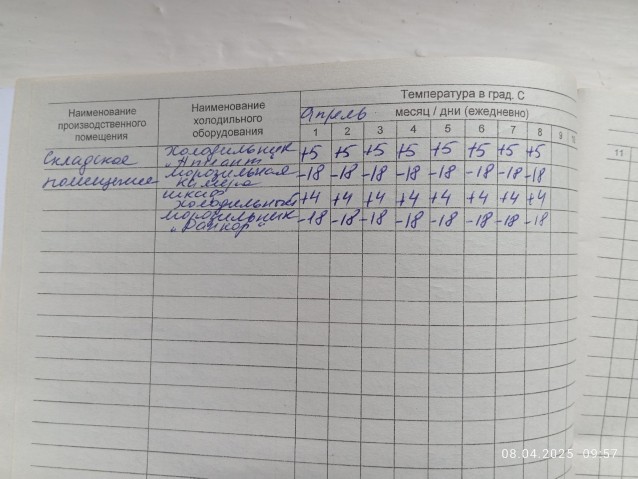 Температура в град. С
Наименование производственного помещения
Наименование холодильного оборудования
Апрель месяц / дни (ежедневно)
1 2 3 4 5 6 7 8 9 10
11
Складское холодильник +5 +5 +5 +5 +5 +5 +5 +5
помещение морозильная -18 -18 -18 -18 -18 -18 -18 -18
камера
шкаф
холодильный +4 +4 +4 +4 +4 +4 +4 +4
морозильник -18 -18 -18 -18 -18 -18 -18 -18
08.04.2025 09:57